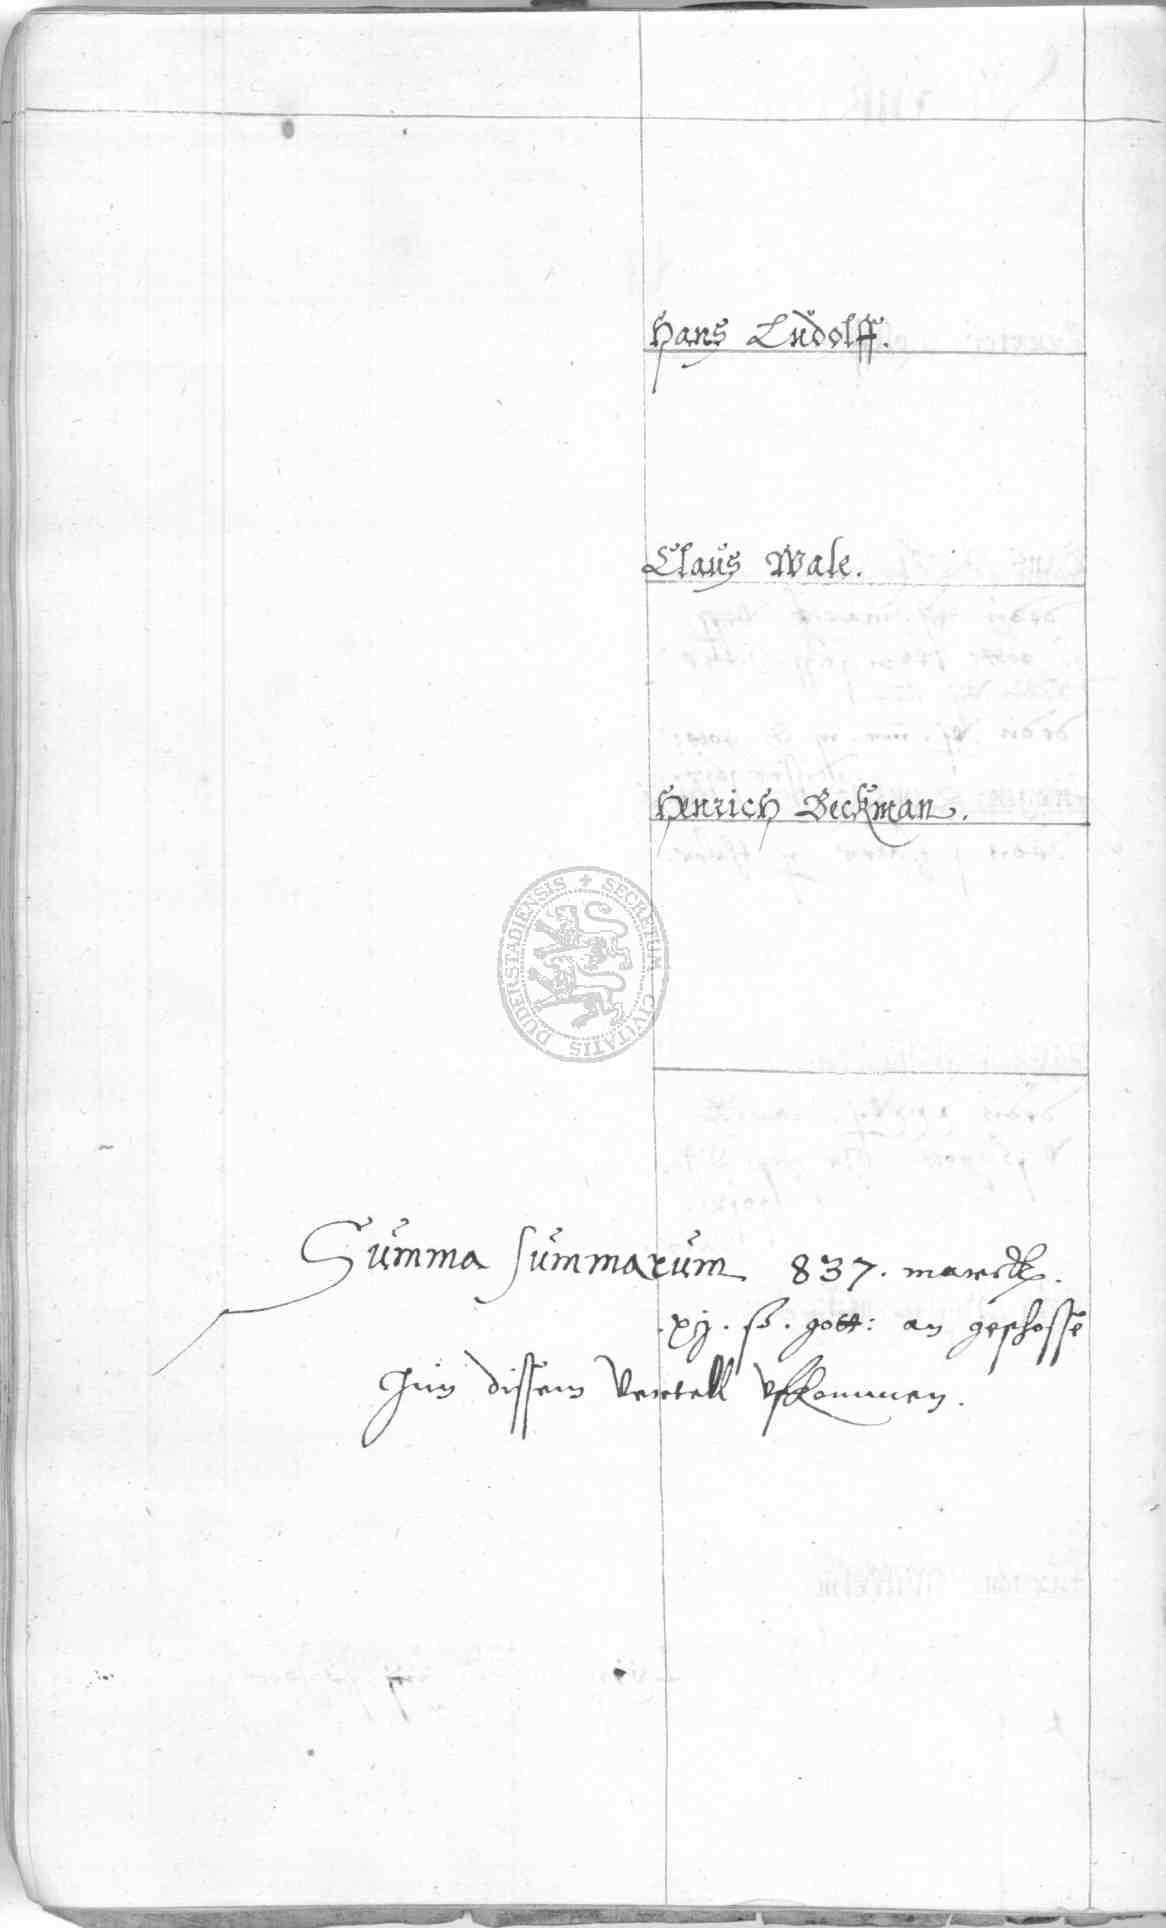 Hans Ludolff.
Claus Wale.
Henrich Beckman.
SECRETUM CIVITATIS DUDERSTADIENSIS
Summa summarum 837. marck.
xj. ß. gott: an geschosse
Inn dissem vertell vffkommen.